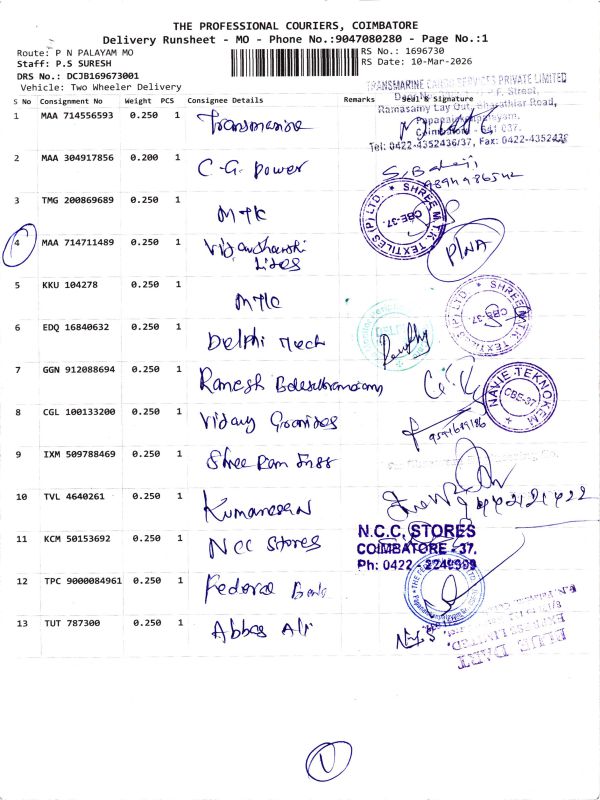 THE PROFESSIONAL COURIERS, COIMBATORE
Delivery Runsheet - MO - Phone No.:9047080280 - Page No.:1
Route: P N PALAYAM MO
RS No.: 1696730
Staff: P.S SURESH
RS Date: 10-Mar-2026
DRS No.: DCJB169673001
Vehicle: Two Wheeler Delivery
TRANSMARINE CARGO SERVICES PRIVATE LIMITED
S No Consignment No Weight PCS Consignee Details Remarks Seal & Signature
Ramasamy Lay Out, Bharathiar Road,
Coimbatore - 641 037.
Tel: 0422-4352436/37, Fax: 0422-4352438
1 MAA 714556593 0.250 1 Transmarine
2 MAA 304917856 0.200 1 C.G. Power
9894986542
3 TMG 200869689 0.250 1 MTK
SHREE M.T.K TEXTILES (P) LTD. CBE-37.
4 MAA 714711489 0.250 1
P/NA
5 KKU 104278 0.250 1 MTK
SHREE M.T.K TEXTILES (P) LTD. CBE-37.
6 EDQ 16840632 0.250 1 Delphi Tech
7 GGN 912088694 0.250 1 Ramesh
NAVIE TEKNOKEM CBE-37
8 CGL 100133200 0.250 1 Vijay Granites
9 IXM 509788469 0.250 1 Shree Ram
10 TVL 4640261 0.250 1 Kumaresan
11 KCM 50153692 0.250 1 NCC Stores
N.C.C. STORES
COIMBATORE - 37.
Ph: 0422 - 2249999
12 TPC 9000084961 0.250 1 Federal Bank
13 TUT 787300 0.250 1 Abbas Ali
BLUE DART
EXPRESS LIMITED